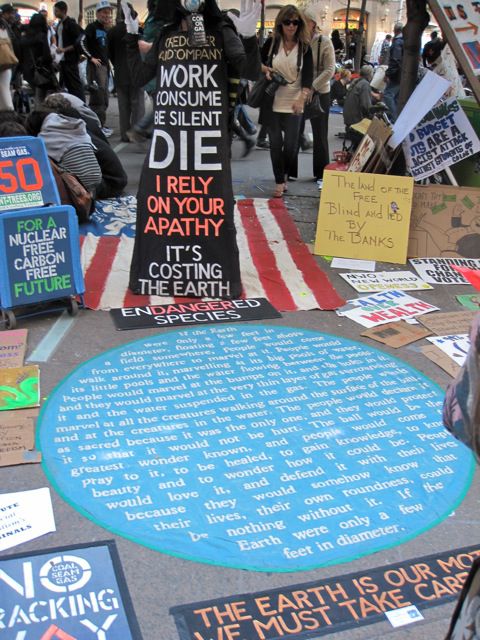 COAL
SEAM
GAS
AND COMPANY
WORK
CONSUME
BE SILENT
DIE
I RELY
ON YOUR
APATHY
IT'S
COSTING
THE EARTH
SEAM GAS
50
FOR A
NUCLEAR
FREE
CARBON
FREE
FUTURE
The land of the
FREE
Blind and led
By
The BANKS
BUDGET
ENDANGERED
SPECIES
NWO = NEW WORLD
STANDING
HEALTH
WEALTH
If the Earth
were only a few feet in
diameter, floating a few feet above
a field somewhere, people would come
from everywhere to marvel at it. People would
walk around it marvelling at its big pools of water,
its little pools and the water flowing between the pools.
People would marvel at the bumps on it, and the holes in it,
and they would marvel at the very thin layer of gas surrounding
it and the water suspended in the gas. The people would
marvel at all the creatures walking around the surface of the ball,
and at the creatures in the water. The people would declare it
as sacred because it was the only one, and they would protect
it so that it would not be hurt. The ball would be the
greatest wonder known, and people would come to
pray to it, to be healed, to gain knowledge, to know
beauty and to wonder how it could be. People
would love it, and defend it with their lives
because they would somehow know that
their lives, their own roundness, could
be nothing without it. If the
Earth were only a few
feet in diameter.
NO
COAL
SEAM
GAS
FRACKING
WAY
THE EARTH IS OUR
WE MUST TAKE CARE